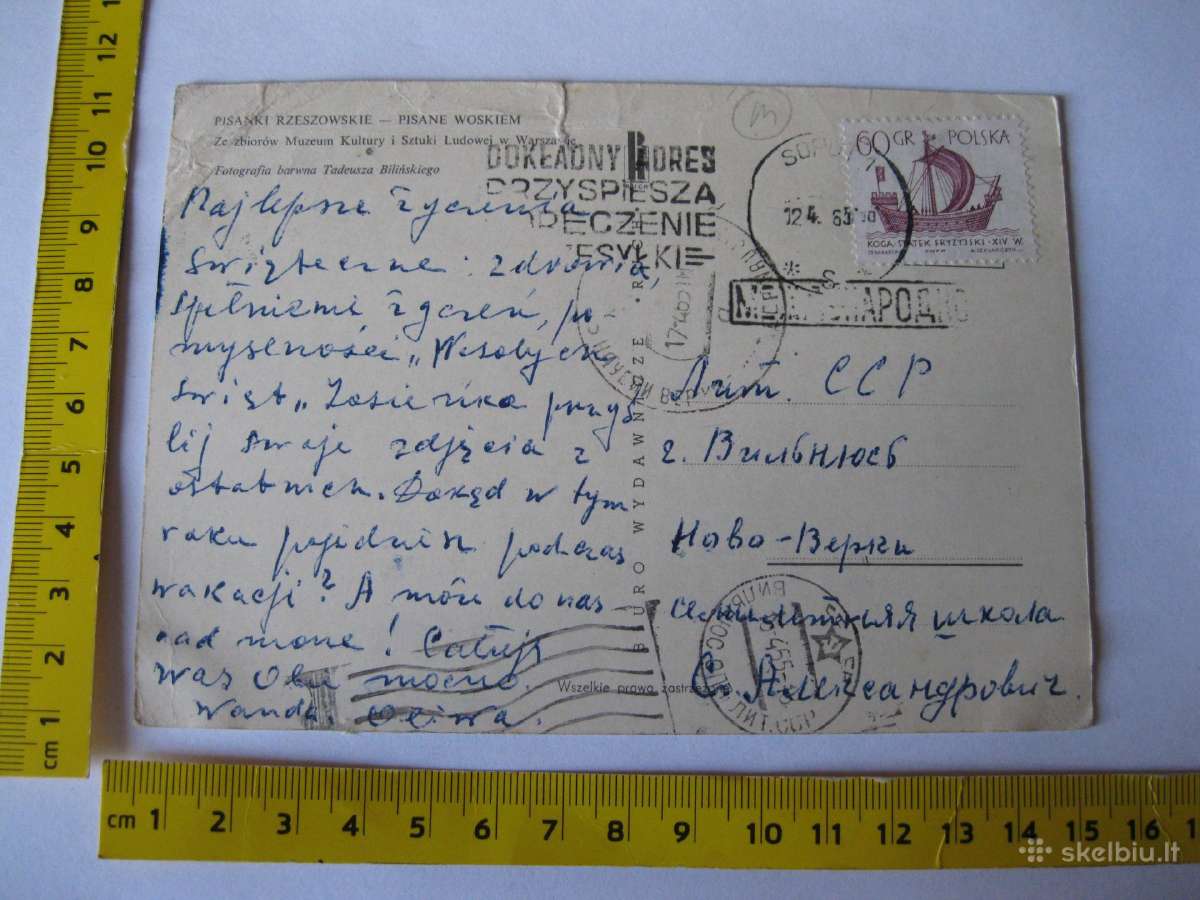 PISANKI RZESZOWSKIE — PISANE WOSKIEM
Ze zbiorów Muzeum Kultury i Sztuki Ludowej w Warszawie
Fotografia barwna Tadeusza Bilińskiego
Najlepsze życzenia
świąteczne: zdrowia,
spełnienia życzeń, po
myślności „Wesołych
Świąt„ Zosieńka przyś
lij swoje zdjęcia z
ostatnich. Dokąd w tym
roku pojedziesz podczas
wakacji? A może do nas
nad morze! Całuję
was oba mocno.
Wanda
BIURO WYDAWNICZE · RUCH
Wszelkie prawa zastrzeżone
DOKŁADNY ADRES
PRZYSPIESZA
DORĘCZENIE
PRZESYŁKI
SOPOT
12.4.65
60 GR POLSKA
KOGA, STATEK FRYZYJSKI - XIV W.
МЕЖДУНАРОДНОЕ
Лит. ССР
г. Вильнюсь
Ново-Верки
семилетняя школа
С. Александрович.
ВИЛЬНЮС
ЛИТ. ССР
cm 1 2 3 4 5 6 7 8 9 10 11 12
cm 1 2 3 4 5 6 7 8 9 10 11 12 13 14 15 16 1
skelbiu.lt